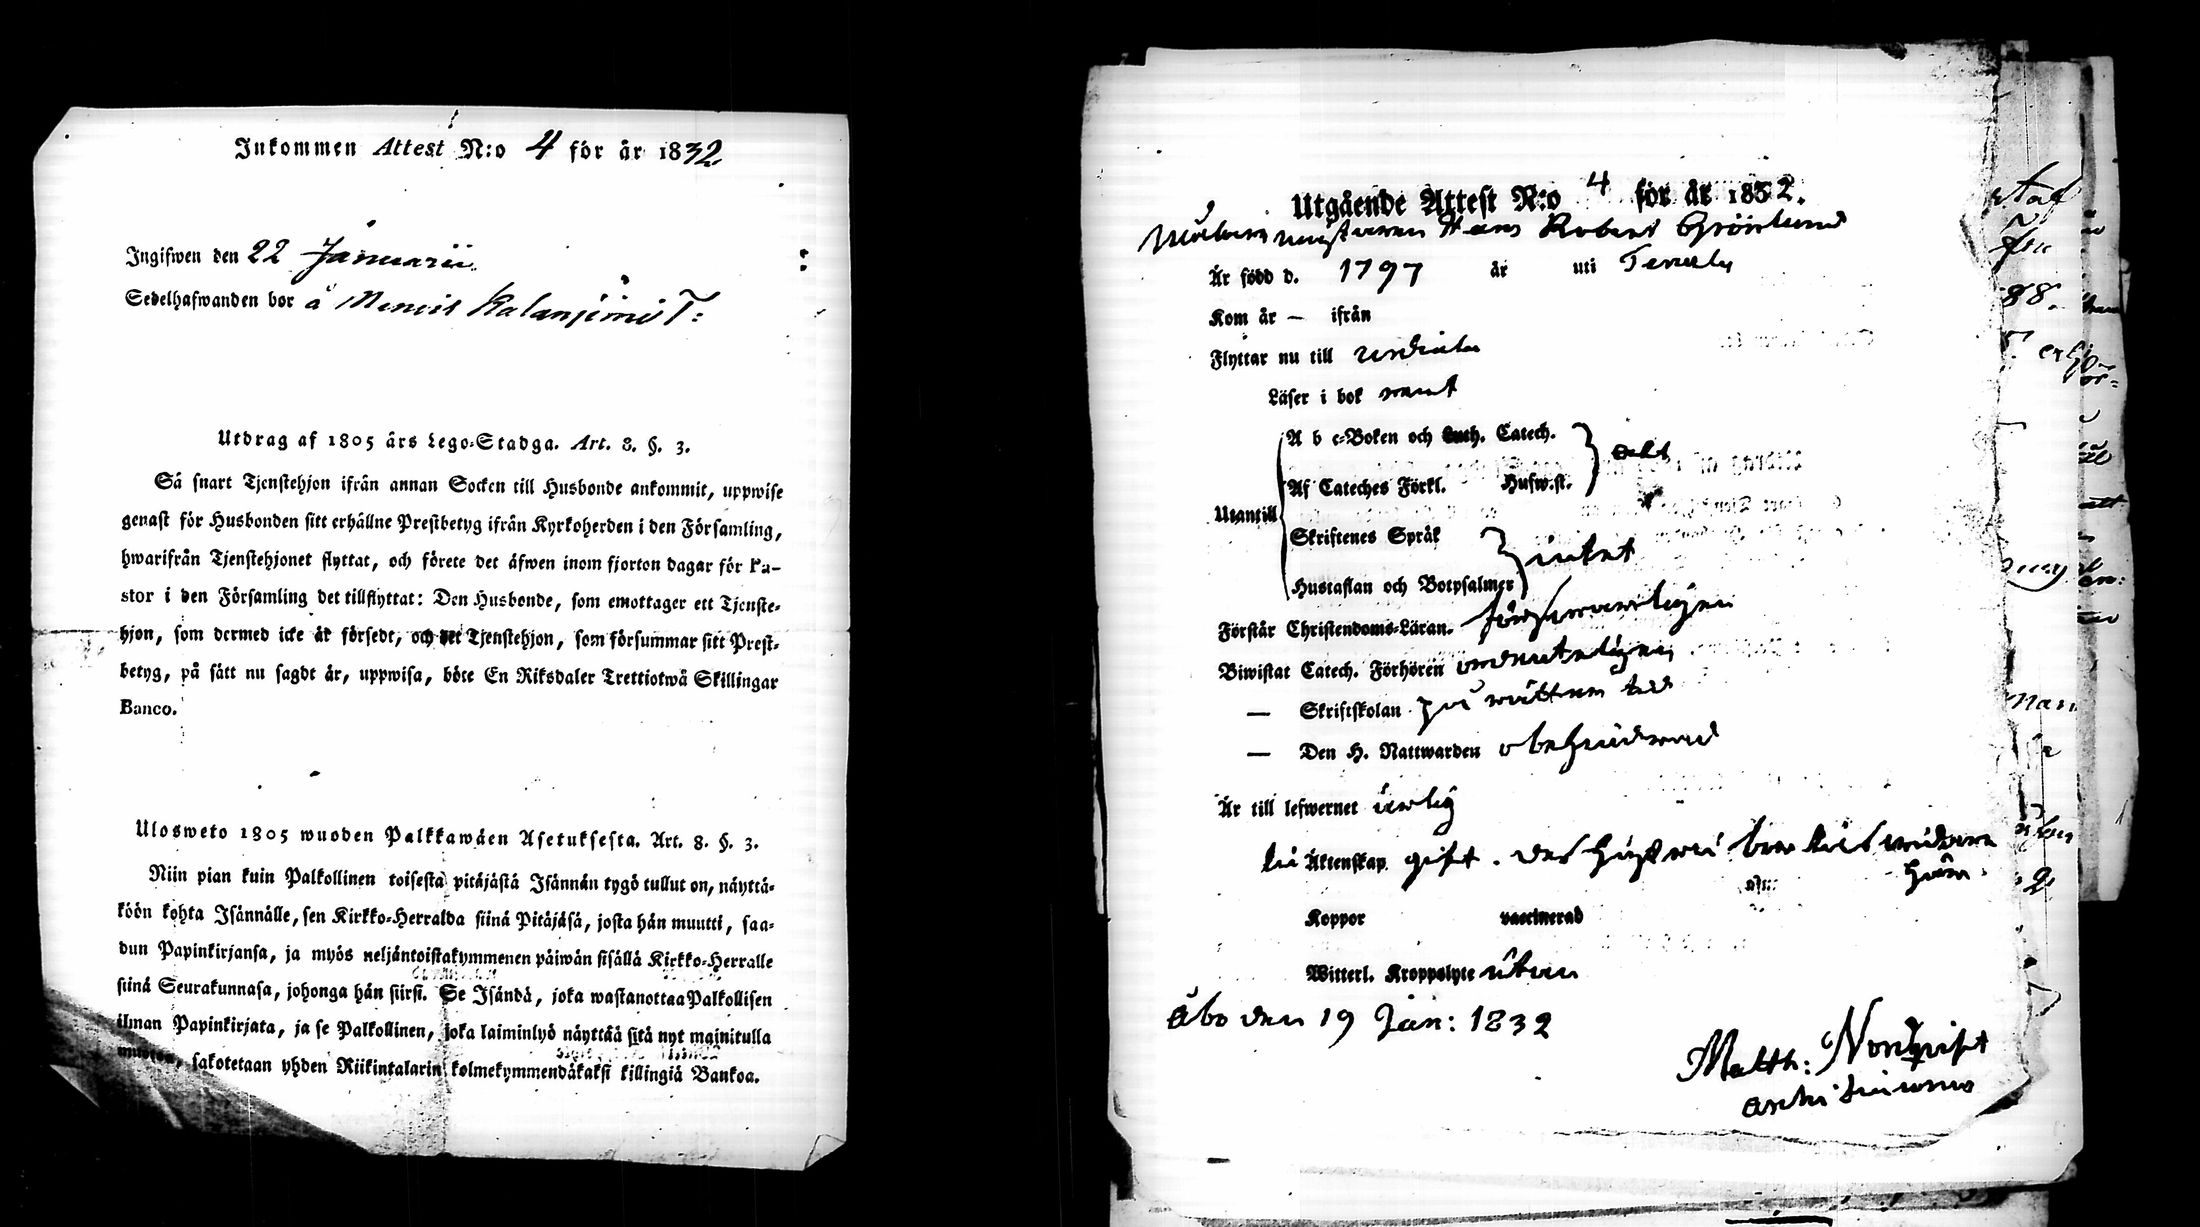 Inkommen Attest N:o 4 för år 1832
Ingifwen den 22 Januarii
Sedelhafwanden bor å Kalanjemi T:
Utdrag af 1805 års Lego-Stadga. Art. 8. §. 3.
Så snart Tjenstehjon ifrån annan Socken till Husbonde ankommit, uppwise
genast för Husbonden sitt erhållne Prestbetyg ifrån Kyrkoherden i den Församling,
hwarifrån Tjenstehjonet flyttat, och förete det äfwen inom fjorton dagar för Pa-
stor i den Församling det tillflyttat: Den Husbonde, som emottager ett Tjenste-
hjon, som dermed icke är försedt, och det Tjenstehjon, som försummar sitt Prest-
betyg, på sätt nu sagdt är, uppwisa, böte En Riksdaler Trettiotwå Skillingar
Banco.
Ulosweto 1805 wuoden Palkkawäen Asetuksesta. Art. 8. §. 3.
Niin pian kuin Palkollinen toisesta pitäjästä Isännän tygö tullut on, näyttä-
köön kohta Isännälle, sen Kirkko-Herralda siinä Pitäjäsä, josta hän muutti, saa-
dun Papinkirjansa, ja myös neljäntoistakymmenen päiwän sisällä Kirkko-Herralle
siinä Seurakunnasa, johonga hän siirsi. Se Isändä, joka wastanottaa Palkollisen
ilman Papinkirjata, ja se Palkollinen, joka laiminlyö näyttää sitä nyt mainitulla
muoton, sakotetaan yhden Riikintalarin kolmekymmendäkaksi killingiä Bankoa.
Utgående Attest N:o 4 för år 1832.
Hans Robert Grönlund
Är född d. 1797 år uti Tenala
Kom år — ifrån
Flyttar nu till
Läser i bok rent
Utantill
A b c-Boken och Luth. Catech.
Af Cateches Förkl. Husw.st.
Skriftenes Språk
intet
Hustaflan och Botpsalmer
Förstår Christendoms-Läran. försvarligen
Biwistat Catech. Förhören ordenteligen
— Skriftskolan på rättan tid
— Den H. Nattwarden obehindrad
Är till lefwernet ärlig
till Äktenskap gift. des hustru
här
Koppor vaccinerad
Witterl. Kroppslyte utan
Åbo den 19 Jan: 1832
Matth: Nordqvist